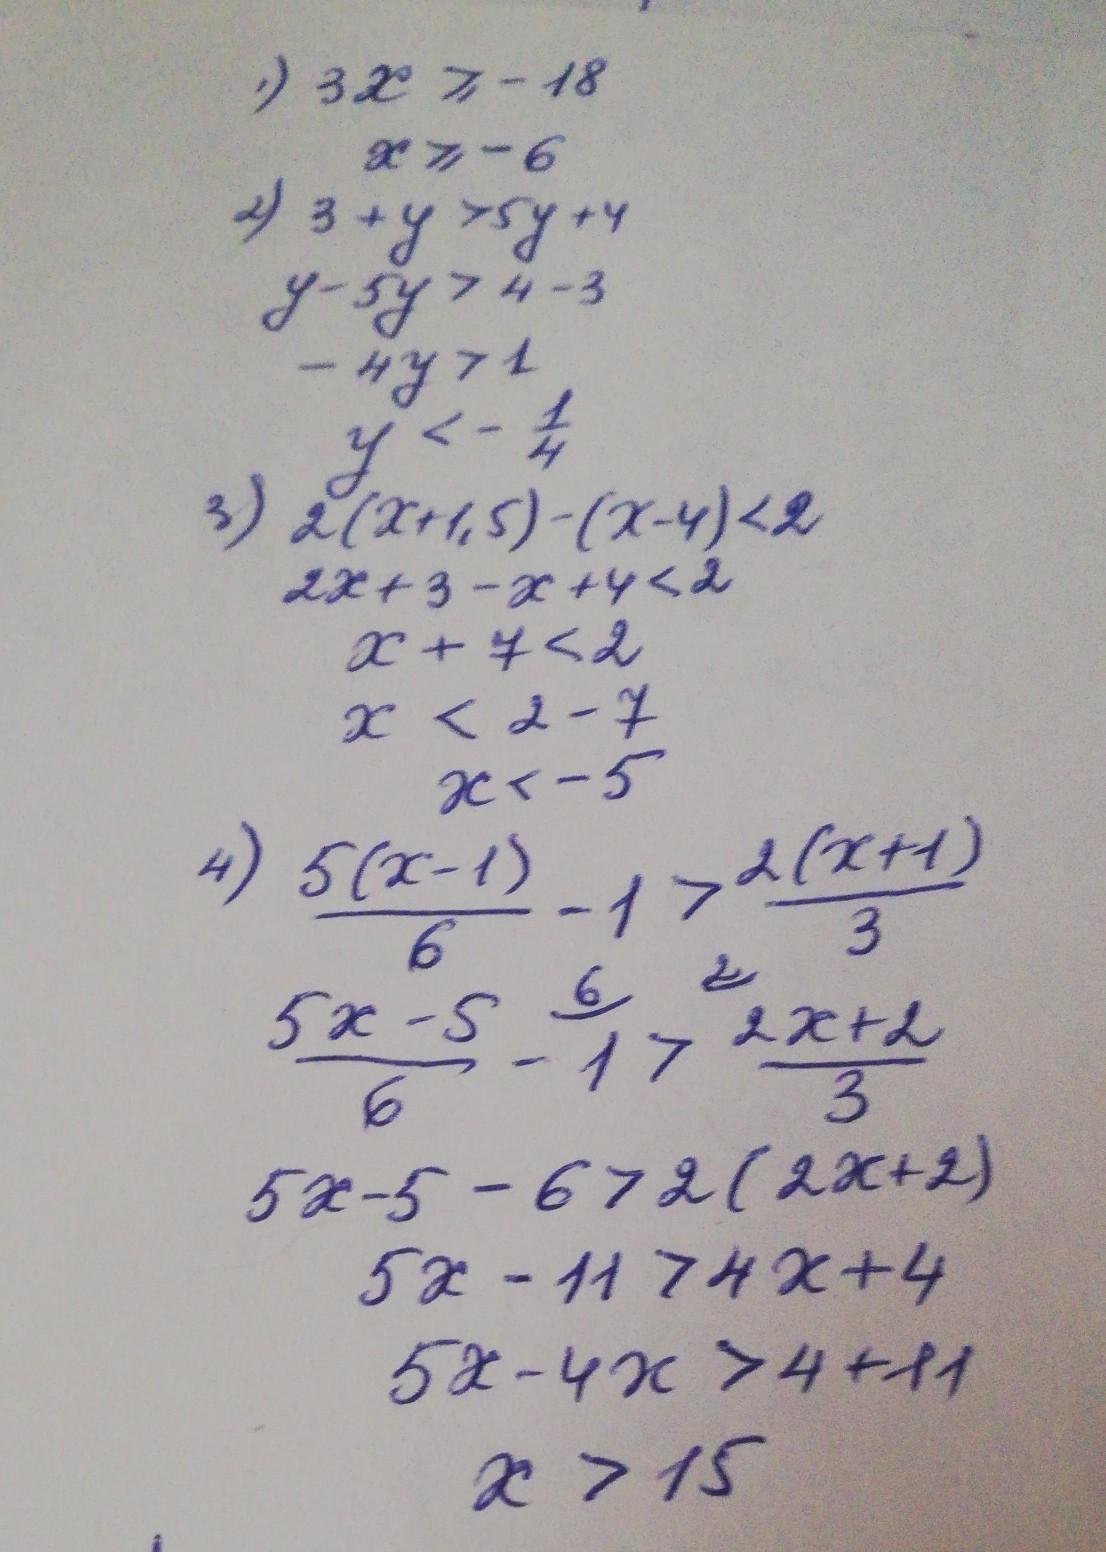 1) 3x ⩾ -18
x ⩾ -6
2) 3 + y > 5y + 4
y - 5y > 4 - 3
- 4y > 1
y < - 1/4
3) 2(x+1,5) - (x-4) < 2
2x + 3 - x + 4 < 2
x + 7 < 2
x < 2 - 7
x < -5
4) 5(x-1)/6 - 1 > 2(x+1)/3
6 2
(5x - 5)/6 - 1 > (2x+2)/3
5x - 5 - 6 > 2(2x+2)
5x - 11 > 4x + 4
5x - 4x > 4 + 11
x > 15